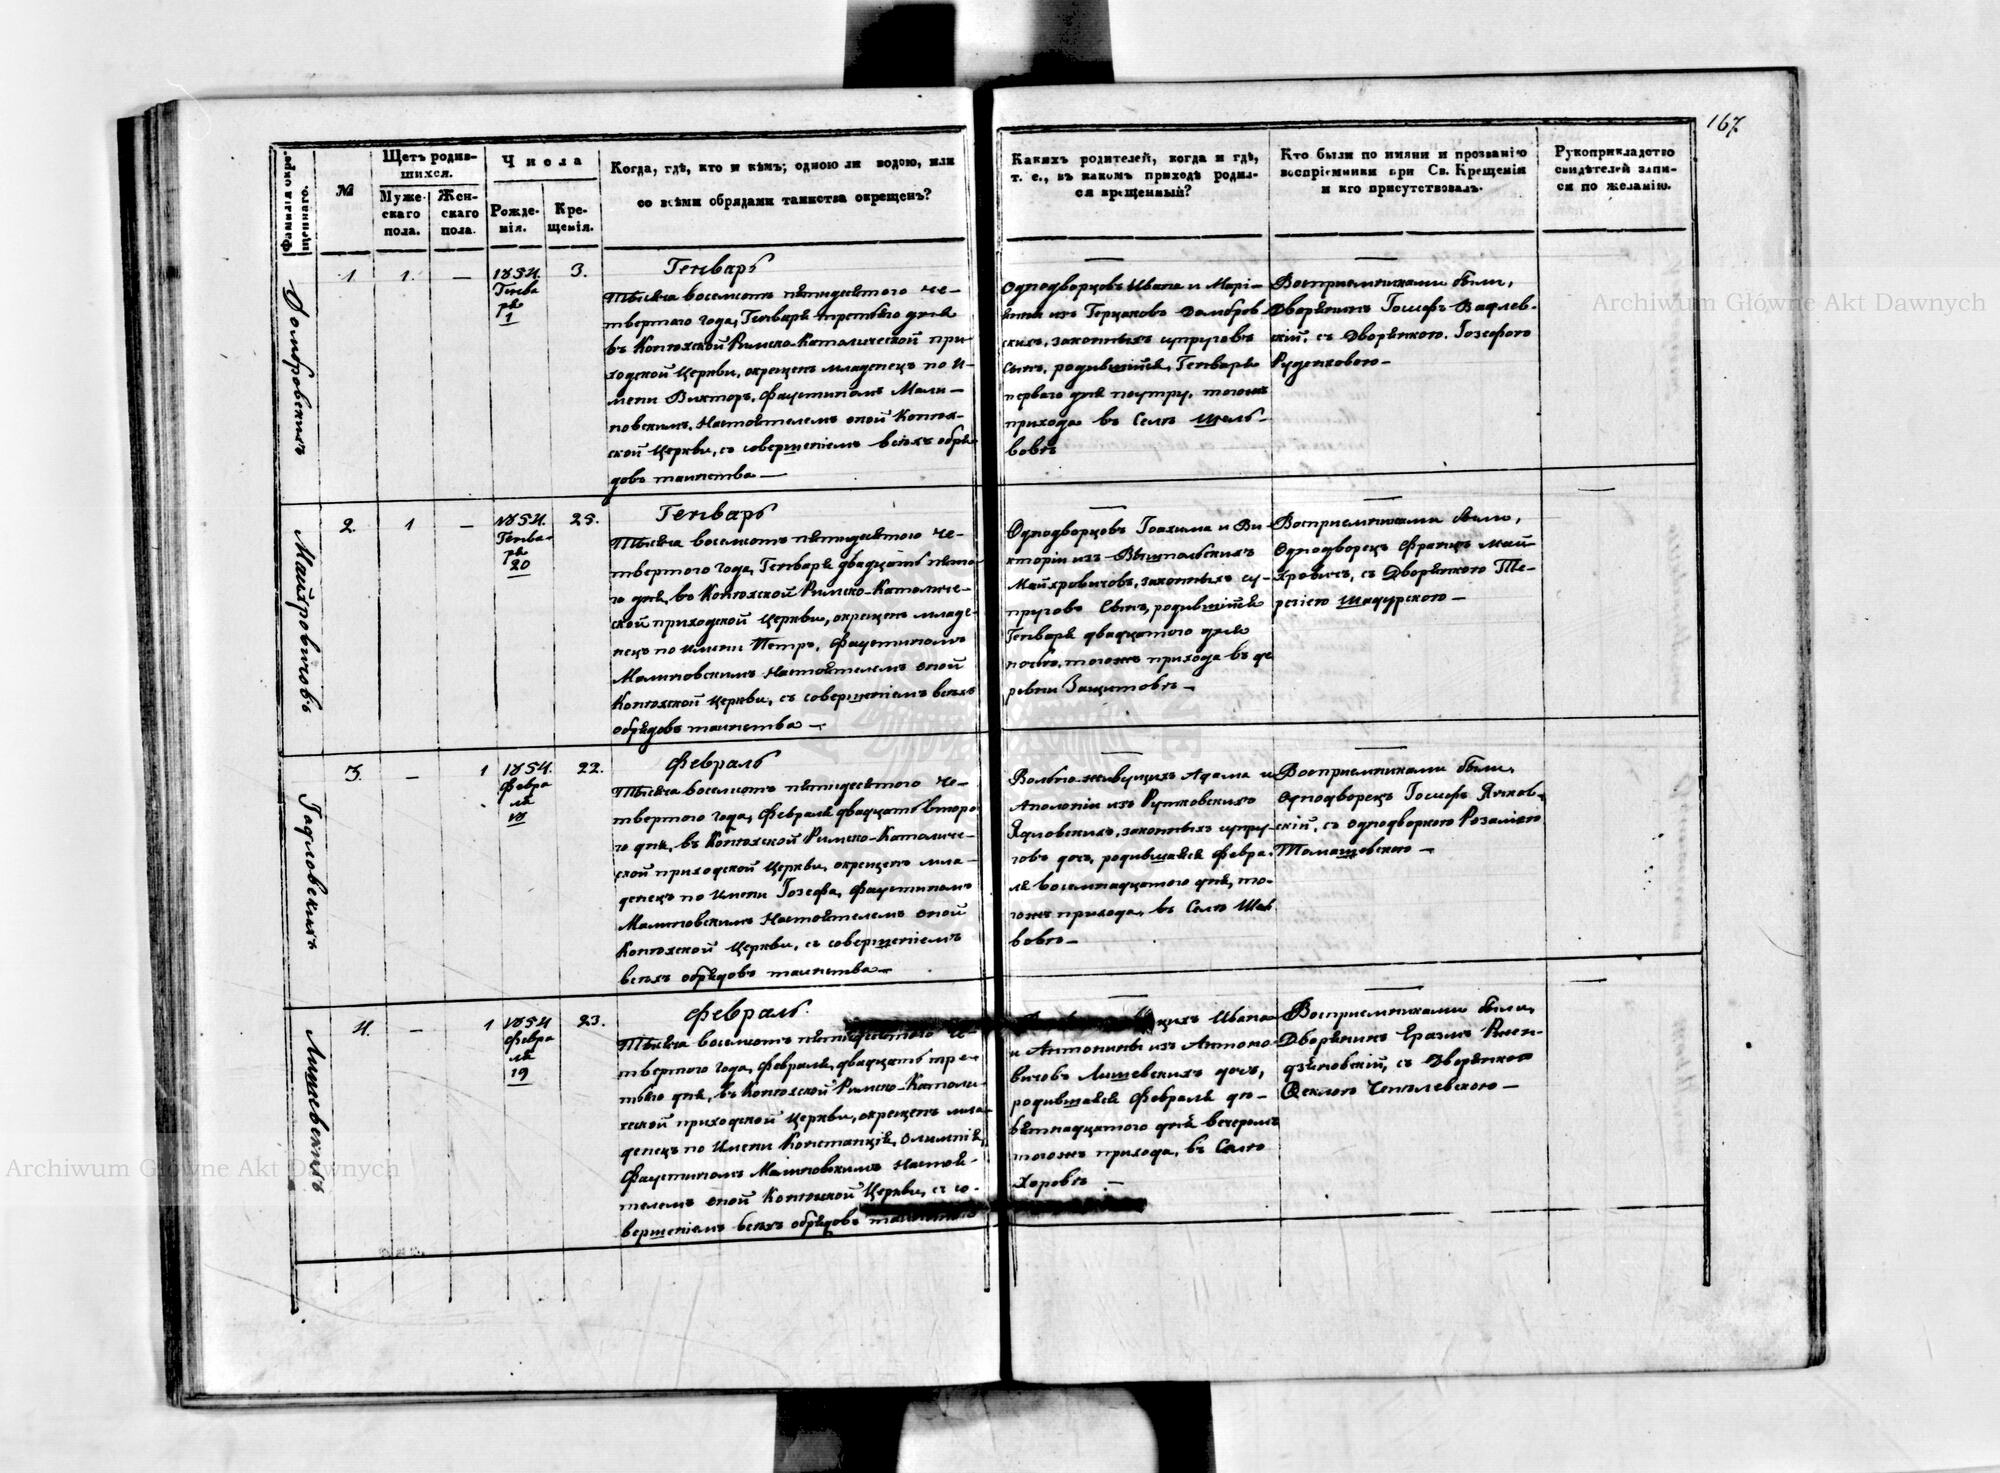 167
Фамилія окре-
щеннаго.
№
Щетъ родив-
шихся.
Муже-
скаго
пола.
Жен-
скаго
пола.
Числа
Рожде-
нія.
Кре-
щенія.
Когда, гдѣ, кто и кѣмъ; одною ли водою, или
со всѣми обрядами таинства окрещенъ?
Какихъ родителей, когда и гдѣ,
т. е., въ какомъ приходѣ родил-
ся крещенный?
Кто были по имяни и прозванію
воспріемники при Св. Крещеніи
и кто присутствовалъ.
Рукоприкладство
свидѣтелей запи-
си по желанію.
Домбровскихъ
1
1.
—
1854.
Генва
ря
1
3.
Генварь
Тысяча восемсотъ пятидесятого че-
твертого года, Генваря третьяго дня
въ Римско-Католической при-
ходской Церкви, окрещенъ младенецъ по И-
мени Викторъ, Фаустиномъ Мали-
новскимъ, Настоятелемъ оной
ской Церкви, съ совершеніемъ всѣхъ обря-
довъ таинства —
Однодворцовъ Ивана и Марі-
янны изъ Домбров-
скихъ, законныхъ супруговъ
сынъ, родившійся, Генваря
перваго дня поутру, тогожъ
прихода въ Селѣ Шель-
вовѣ
Воспріемниками были,
Дворянинъ Іосифъ Вадлев-
скій, съ Дворянкою, Іозефою
Майхровичовъ
2.
1
—
1854.
Генва-
ря
20
25.
Генварь
Тысяча восемсотъ пятидесятого че-
твертого года, Генваря двадцать пято-
го дня, въ Римско-Католиче-
ской приходской Церкви, окрещенъ младе-
нецъ по имени Петръ, Фаустиномъ
Малиновскимъ Настоятелемъ оной
Церкви, съ совершеніемъ всѣхъ
обрядовъ таинства —
Однодворцовъ Іоахима и Ви-
кторіи изъ
Майхровичовъ, законныхъ су-
пруговъ Сынъ, родившійся
Генваря двадцатого дня
тогожъ прихода въ де
ревни
Воспріемниками были,
Однодворецъ Францъ Май-
хровичъ, съ Дворянкою Те-
ресією Шадурскою —
3.
—
1
1854.
Февра
ля
18
22.
Февраль
Тысяча восемсотъ пятидесятого че-
твертого года, Февраля двадцать второ
го дня, въ Римско-Католиче-
ской приходской Церкви, окрещенъ мла-
денецъ по Имени Іозефа, Фаустиномъ
Малиновскимъ Настоятелемъ оной
Церкви, съ совершеніемъ
всѣхъ обрядовъ таинства —
Вольно живущихъ Адама и
Аполоніи изъ Рутковскихъ
законныхъ супру-
говъ дочь, родившаяся Февра-
ля восемнадцатого дня, то-
гожъ прихода, въ Селѣ Шел
вовѣ —
Воспріемниками были,
Однодворецъ Іосифъ
скій, съ Однодворкою Розалією
Томашевскою —
Лишевскихъ
4.
—
1
1854
Февра
ля
19
23.
Февраль.
Тысяча восемсотъ пятидесятого че-
твертого года, Февраля, двадцать тре-
тьяго дня, въ Римско-Католи-
ческой приходской Церкви, окрещенъ мла-
денецъ по Имени Констанція, Олимпія,
Фаустиномъ Малиновскимъ Настоя-
телемъ оной Церкви, съ со-
вершеніемъ всѣхъ обрядовъ таинства
Ивана
и Антонины изъ Антоно-
вичовъ Лишевскихъ дочь,
родившаяся Февраля де-
вятнадцатого дня вечеромъ
тогожъ прихода, въ Селѣ
Воспріемниками были,
Дворянинъ Еразмъ
съ Дворянкою
Ѳеклою —
Archiwum Główne Akt Dawnych
Archiwum Główne Akt Dawnych